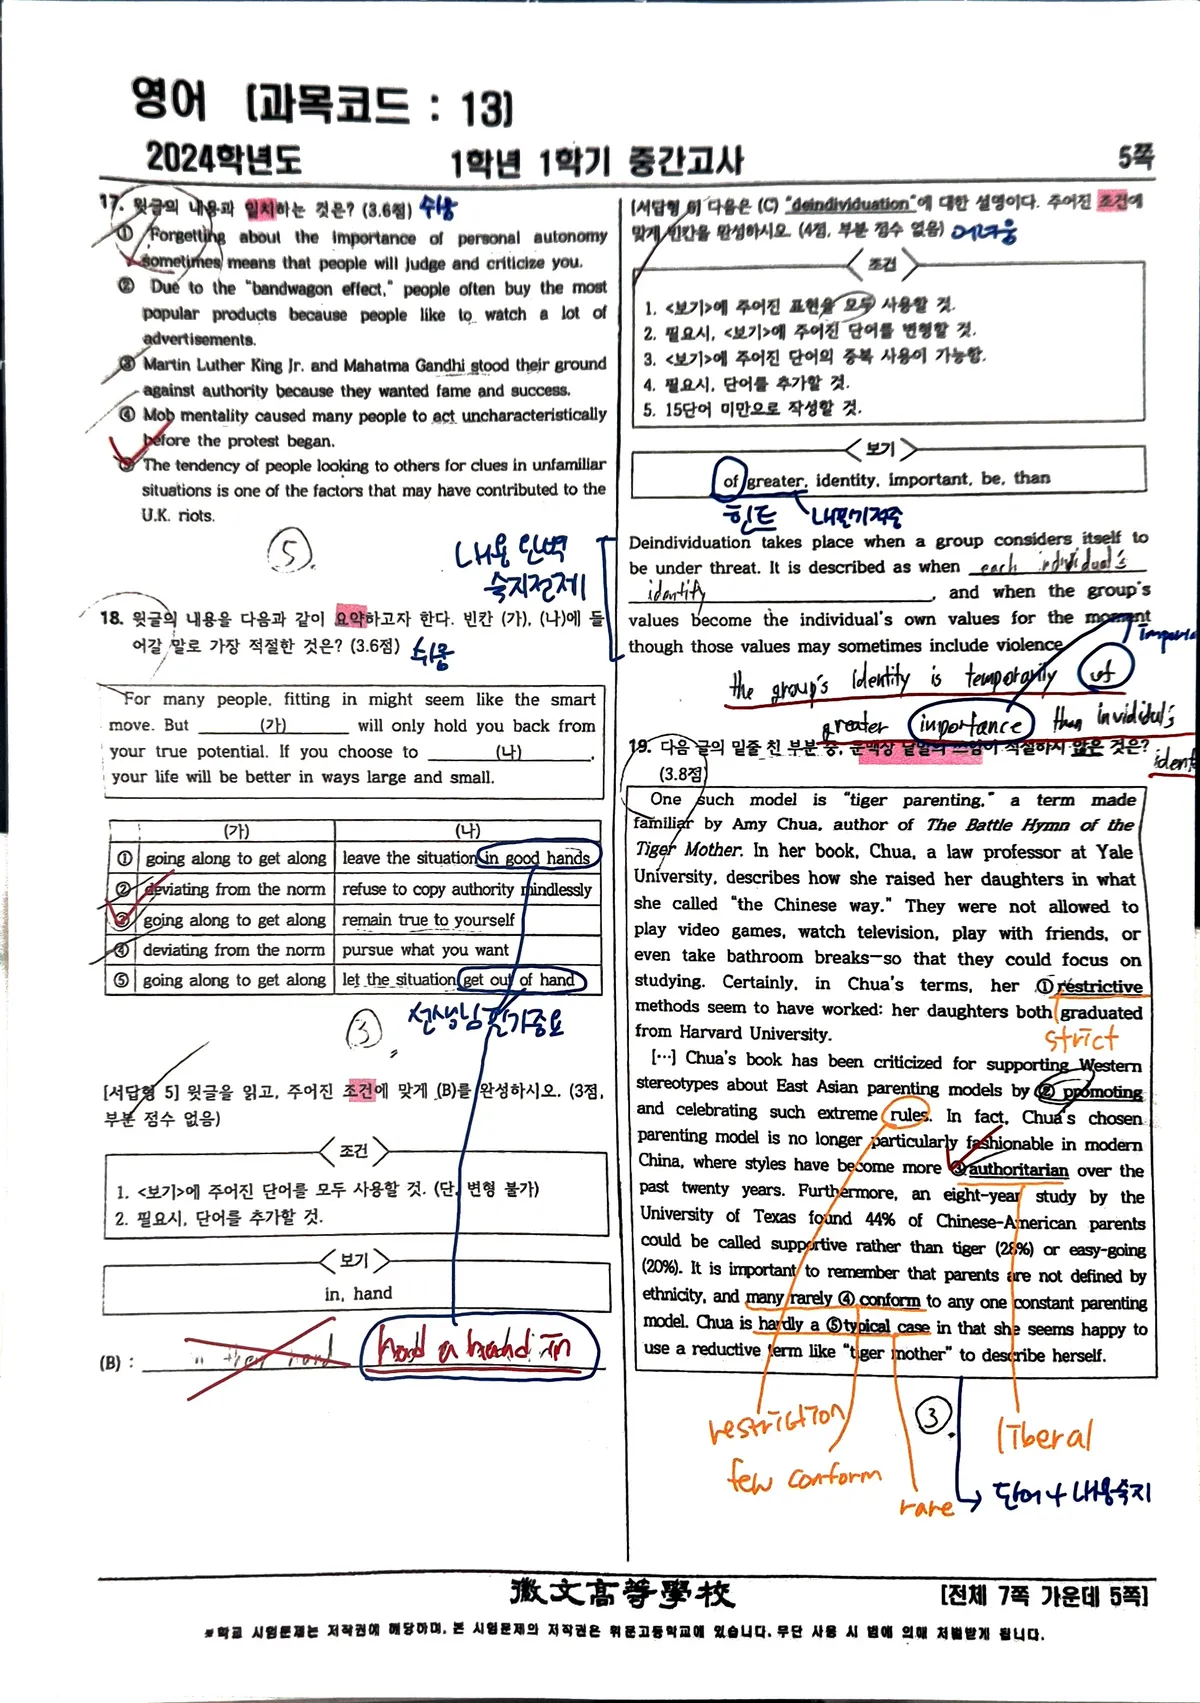 영어 [과목코드 : 13]
2024학년도 1학년 1학기 중간고사 5쪽
17. 윗글의 내용과 일치하는 것은? (3.6점) 쉬움
① Forgetting about the importance of personal autonomy
sometimes means that people will judge and criticize you.
② Due to the "bandwagon effect," people often buy the most
popular products because people like to watch a lot of
advertisements.
③ Martin Luther King Jr. and Mahatma Gandhi stood their ground
against authority because they wanted fame and success.
④ Mob mentality caused many people to act uncharacteristically
before the protest began.
⑤ The tendency of people looking to others for clues in unfamiliar
situations is one of the factors that may have contributed to the
U.K. riots.
⑤.
내용 완벽
숙지전제
18. 윗글의 내용을 다음과 같이 요약하고자 한다. 빈칸 (가), (나)에 들
어갈 말로 가장 적절한 것은? (3.6점) 쉬움
For many people, fitting in might seem like the smart
move. But (가) will only hold you back from
your true potential. If you choose to (나),
your life will be better in ways large and small.
(가) (나)
① going along to get along leave the situation in good hands
② deviating from the norm refuse to copy authority mindlessly
③ going along to get along remain true to yourself
④ deviating from the norm pursue what you want
⑤ going along to get along let the situation get out of hand
③.
선생님 필기중요
[서답형 5] 윗글을 읽고, 주어진 조건에 맞게 (B)를 완성하시오. (3점,
부분 점수 없음)
조건
1. <보기>에 주어진 단어를 모두 사용할 것. (단, 변형 불가)
2. 필요시, 단어를 추가할 것.
보기
in, hand
(B) : had a hand in
[서답형 6] 다음은 (C) "deindividuation"에 대한 설명이다. 주어진 조건에
맞게 빈칸을 완성하시오. (4점, 부분 점수 없음) 어려움
조건
1. <보기>에 주어진 표현을 모두 사용할 것.
2. 필요시, <보기>에 주어진 단어를 변형할 것.
3. <보기>에 주어진 단어의 중복 사용이 가능함.
4. 필요시, 단어를 추가할 것.
5. 15단어 미만으로 작성할 것.
보기
of greater, identity, important, be, than
힌트 내필기적중
Deindividuation takes place when a group considers itself to
be under threat. It is described as when each individual's
identity, and when the group's
values become the individual's own values for the moment
though those values may sometimes include violence.
the group's identity is temporarily of
greater importance than invididul's
19. 다음 글의 밑줄 친 부분 중, 문맥상 낱말의 쓰임이 적절하지 않은 것은?
(3.8점)
One such model is "tiger parenting," a term made
familiar by Amy Chua, author of The Battle Hymn of the
Tiger Mother. In her book, Chua, a law professor at Yale
University, describes how she raised her daughters in what
she called "the Chinese way." They were not allowed to
play video games, watch television, play with friends, or
even take bathroom breaks—so that they could focus on
studying. Certainly, in Chua's terms, her ① restrictive
methods seem to have worked: her daughters both graduated
from Harvard University.
strict
[…] Chua's book has been criticized for supporting Western
stereotypes about East Asian parenting models by ② promoting
and celebrating such extreme rules. In fact, Chua's chosen
parenting model is no longer particularly fashionable in modern
China, where styles have become more ③ authoritarian over the
past twenty years. Furthermore, an eight-year study by the
University of Texas found 44% of Chinese-American parents
could be called supportive rather than tiger (28%) or easy-going
(20%). It is important to remember that parents are not defined by
ethnicity, and many rarely ④ conform to any one constant parenting
model. Chua is hardly a ⑤ typical case in that she seems happy to
use a reductive term like "tiger mother" to describe herself.
restriction
③.
liberal
few conform
rare
단어 + 내용숙지
徽文高等學校
[전체 7쪽 가운데 5쪽]
※학교 시험문제는 저작권에 해당하며, 본 시험문제의 저작권은 휘문고등학교에 있습니다. 무단 사용 시 법에 의해 처벌받게 됩니다.